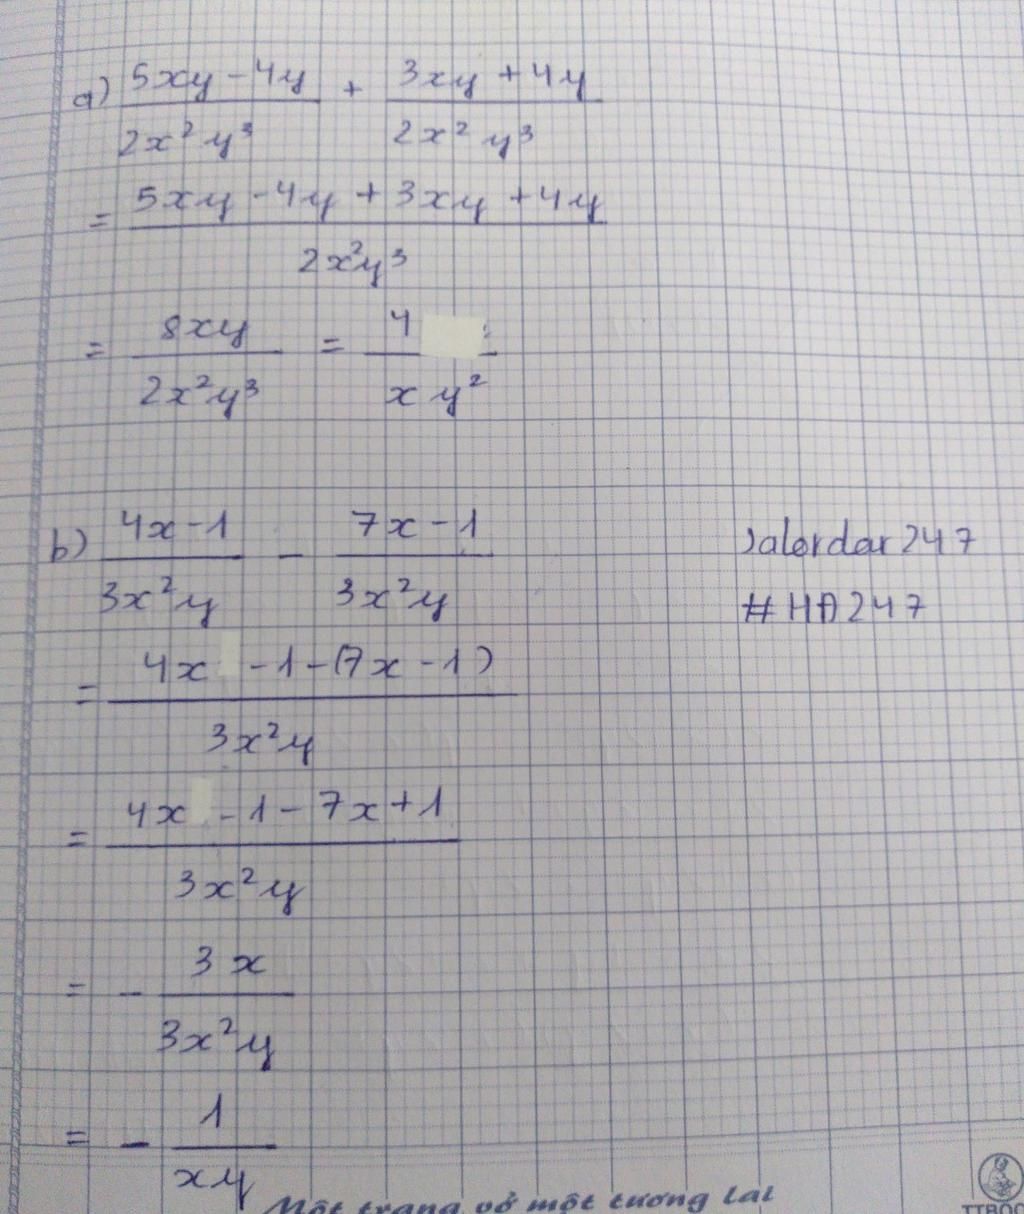 a) (5xy - 4y)/(2x²y³) + (3xy + 4y)/(2x²y³)
= (5xy - 4y + 3xy + 4y)/(2x²y³)
= 8xy/(2x²y³) = 4/(xy²)
b) (4x - 1)/(3x²y) - (7x - 1)/(3x²y)
= (4x - 1 - (7x - 1))/(3x²y)
= (4x - 1 - 7x + 1)/(3x²y)
= - 3x/(3x²y)
= - 1/(xy)
#HA247
Một trang vở một tương lai